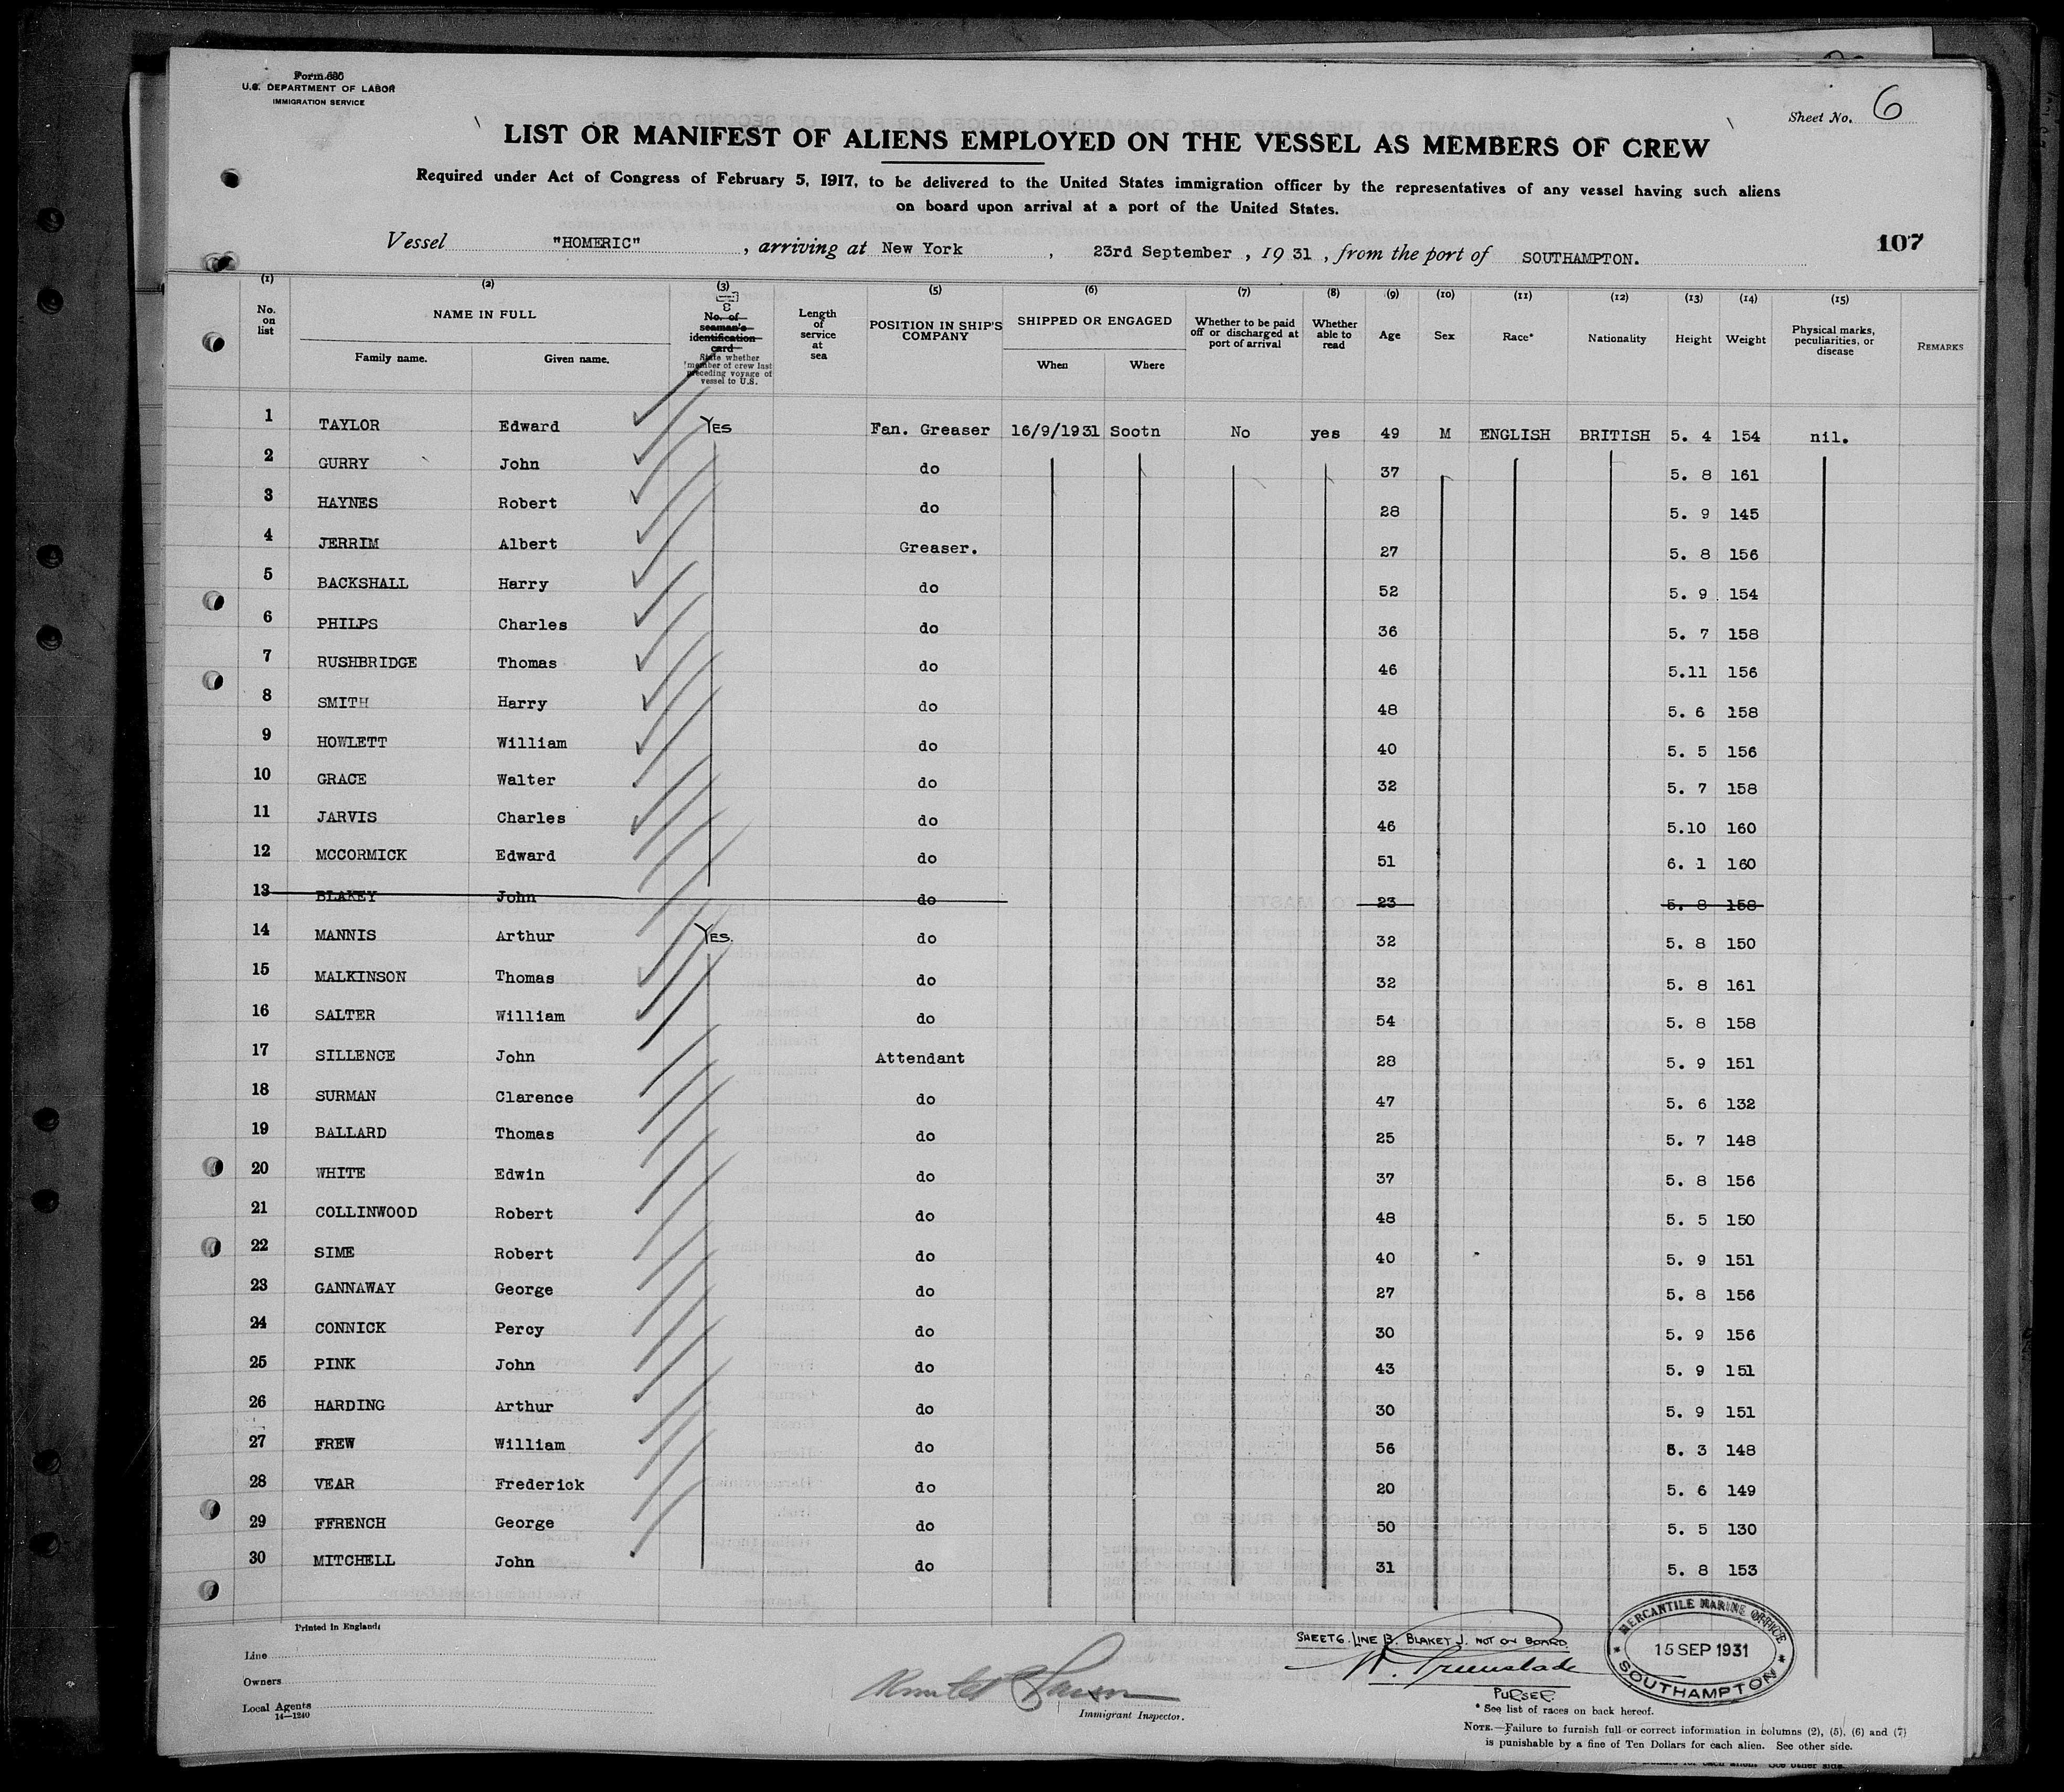 Form 686
U.S. DEPARTMENT OF LABOR
IMMIGRATION SERVICE
Sheet No. 6
LIST OR MANIFEST OF ALIENS EMPLOYED ON THE VESSEL AS MEMBERS OF CREW
Required under Act of Congress of February 5, 1917, to be delivered to the United States immigration officer by the representatives of any vessel having such aliens
on board upon arrival at a port of the United States.
Vessel "HOMERIC", arriving at New York, 23rd September, 1931, from the port of SOUTHAMPTON.
107
(1) (2) (3) (5) (6) (7) (8) (9) (10) (11) (12) (13) (14) (15)
No. on list
NAME IN FULL
Family name. Given name.
No. of seaman's identification card
State whether member of crew last preceding voyage of vessel to U.S.
Length of service at sea
POSITION IN SHIP'S COMPANY
SHIPPED OR ENGAGED
When Where
Whether to be paid off or discharged at port of arrival
Whether able to read
Age
Sex
Race*
Nationality
Height
Weight
Physical marks, peculiarities, or disease
REMARKS
1 TAYLOR Edward YES Fan. Greaser 16/9/1931 Sootn No yes 49 M ENGLISH BRITISH 5. 4 154 nil.
2 GURRY John do 37 5. 8 161
3 HAYNES Robert do 28 5. 9 145
4 JERRIM Albert Greaser. 27 5. 8 156
5 BACKSHALL Harry do 52 5. 9 154
6 PHILPS Charles do 36 5. 7 158
7 RUSHBRIDGE Thomas do 46 5.11 156
8 SMITH Harry do 48 5. 6 158
9 HOWLETT William do 40 5. 5 156
10 GRACE Walter do 32 5. 7 158
11 JARVIS Charles do 46 5.10 160
12 MCCORMICK Edward do 51 6. 1 160
13 BLAKEY John do 23 5. 8 158
14 MANNIS Arthur YES. do 32 5. 8 150
15 MALKINSON Thomas do 32 5. 8 161
16 SALTER William do 54 5. 8 158
17 SILLENCE John Attendant 28 5. 9 151
18 SURMAN Clarence do 47 5. 6 132
19 BALLARD Thomas do 25 5. 7 148
20 WHITE Edwin do 37 5. 8 156
21 COLLINWOOD Robert do 48 5. 5 150
22 SIME Robert do 40 5. 9 151
23 GANNAWAY George do 27 5. 8 156
24 CONNICK Percy do 30 5. 9 156
25 PINK John do 43 5. 9 151
26 HARDING Arthur do 30 5. 9 151
27 FREW William do 56 5. 3 148
28 VEAR Frederick do 20 5. 6 149
29 FFRENCH George do 50 5. 5 130
30 MITCHELL John do 31 5. 8 153
Printed in England
Line
Owners
Local Agents
14—1240
Immigrant Inspector.
SHEET 6. LINE 13. BLAKEY J. NOT ON BOARD.
PURSER
MERCANTILE MARINE OFFICE
15 SEP 1931
SOUTHAMPTON
* See list of races on back hereof.
NOTE.—Failure to furnish full or correct information in columns (2), (5), (6) and (7)
is punishable by a fine of Ten Dollars for each alien. See other side.